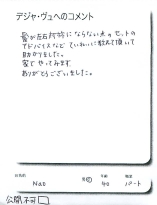 デジャ・ヴュへのコメント
髪が左右対称にならない点のセットの
アドバイスなど ていねいに教えて頂いて
助かりました。
家でやってみます。
ありがとうございました。
お名前
Nao
年齢
40
職業
パート
公開不可